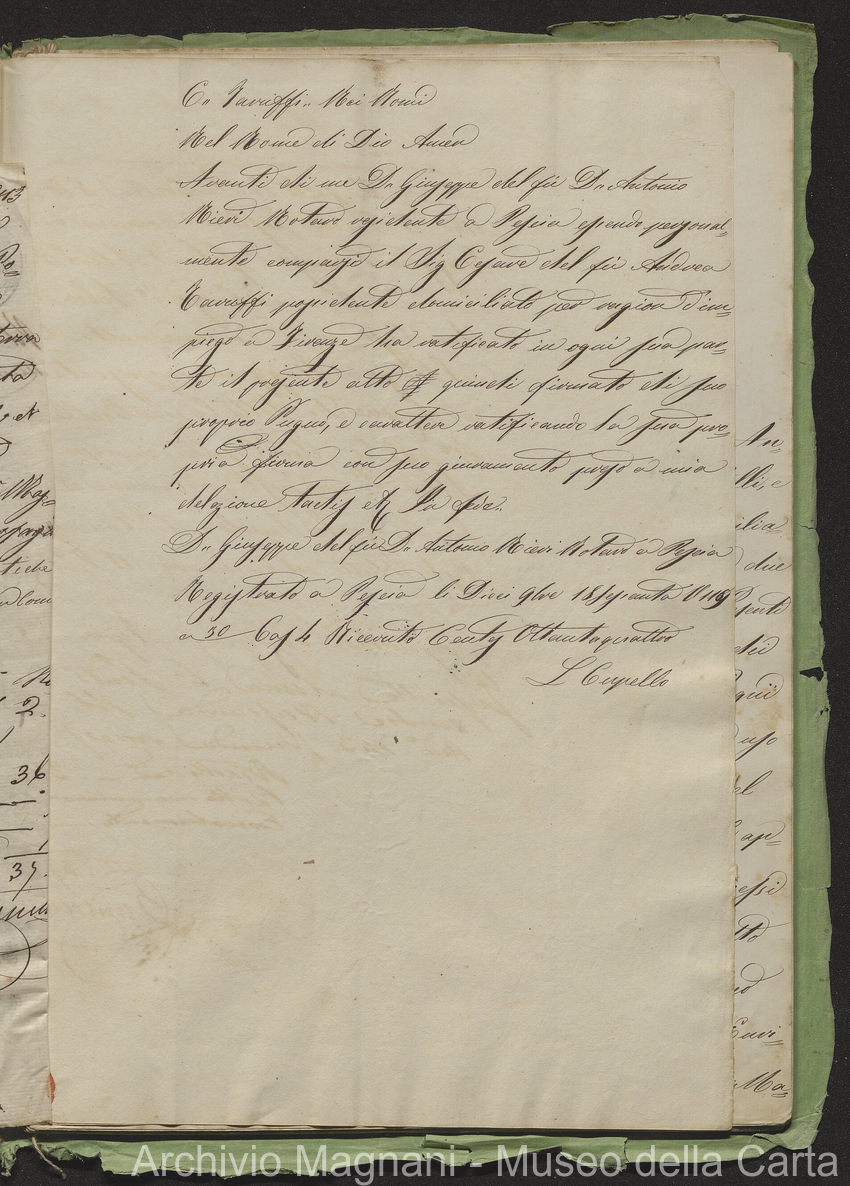 C. Taruffi. Nei Nomi
Nel Nome di Dio Amen
Avanti di me Dr. Giuseppe del fù Dr. Antonio
Nieri Notaro residente a Pescia essendo personal=
mente comparso il Sig Cesare del fù Andrea
Taruffi possidente domiciliato per ragion d'im=
piego a Firenze ha ratificato in ogni sua par=
te il presente atto quindi firmato di suo
proprio Pugno, e carattere ratificando la sua pro=
pria firma con suo giuramento preso a mia
delazione tactis et In fede.
Dr. Giuseppe del fù Dr. Antonio Nieri Notaro a Pescia
Registrato a Pescia li Dieci 9bre 18
30 Cas 4 Ricevuto Cents Ottantaquattro
L Cupello
An=
lli, e
ilia
due
qui
uso
el
ap=
essi
tto
Ma=
36
37.
Archivio Magnani - Museo della Carta